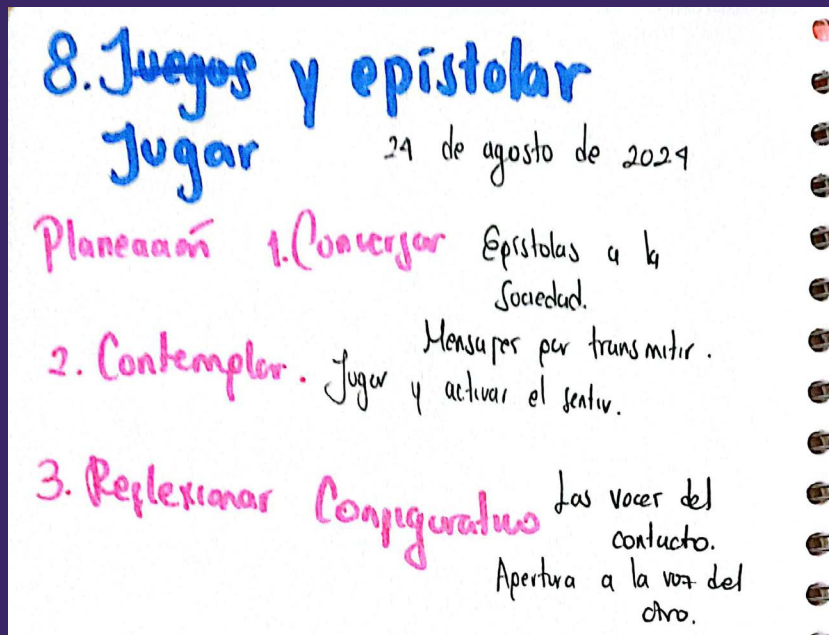 8. Juegos y epistolar
Jugar 24 de agosto de 2024
Planeación 1. Conversar Epístolas a la
Sociedad.
Mensajes por transmitir.
2. Contemplar. Jugar y activar el sentir.
3. Reflexionar Configurativo Las voces del
contacto.
Apertura a la voz del
otro.